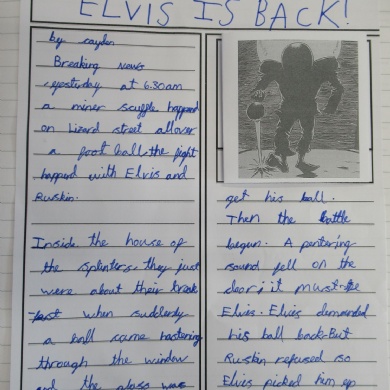 ELVIS IS BACK!
by cayden
Breaking News
yesterday at 6.30am
a miner scuffle happend
on Lizard street allover
a foot ball. the fight
happend with Elvis and
Ruskin.
Inside the house of
the splinters, they just
were about their break
-fast when suddenly
a ball came hastening
through the window
and the glass was
get his ball.
Then the battle
begun. A
sound fell on the
door; it must be
Elvis. Elvis demanded
his ball back. But
Ruskin refused so
Elvis picked him up